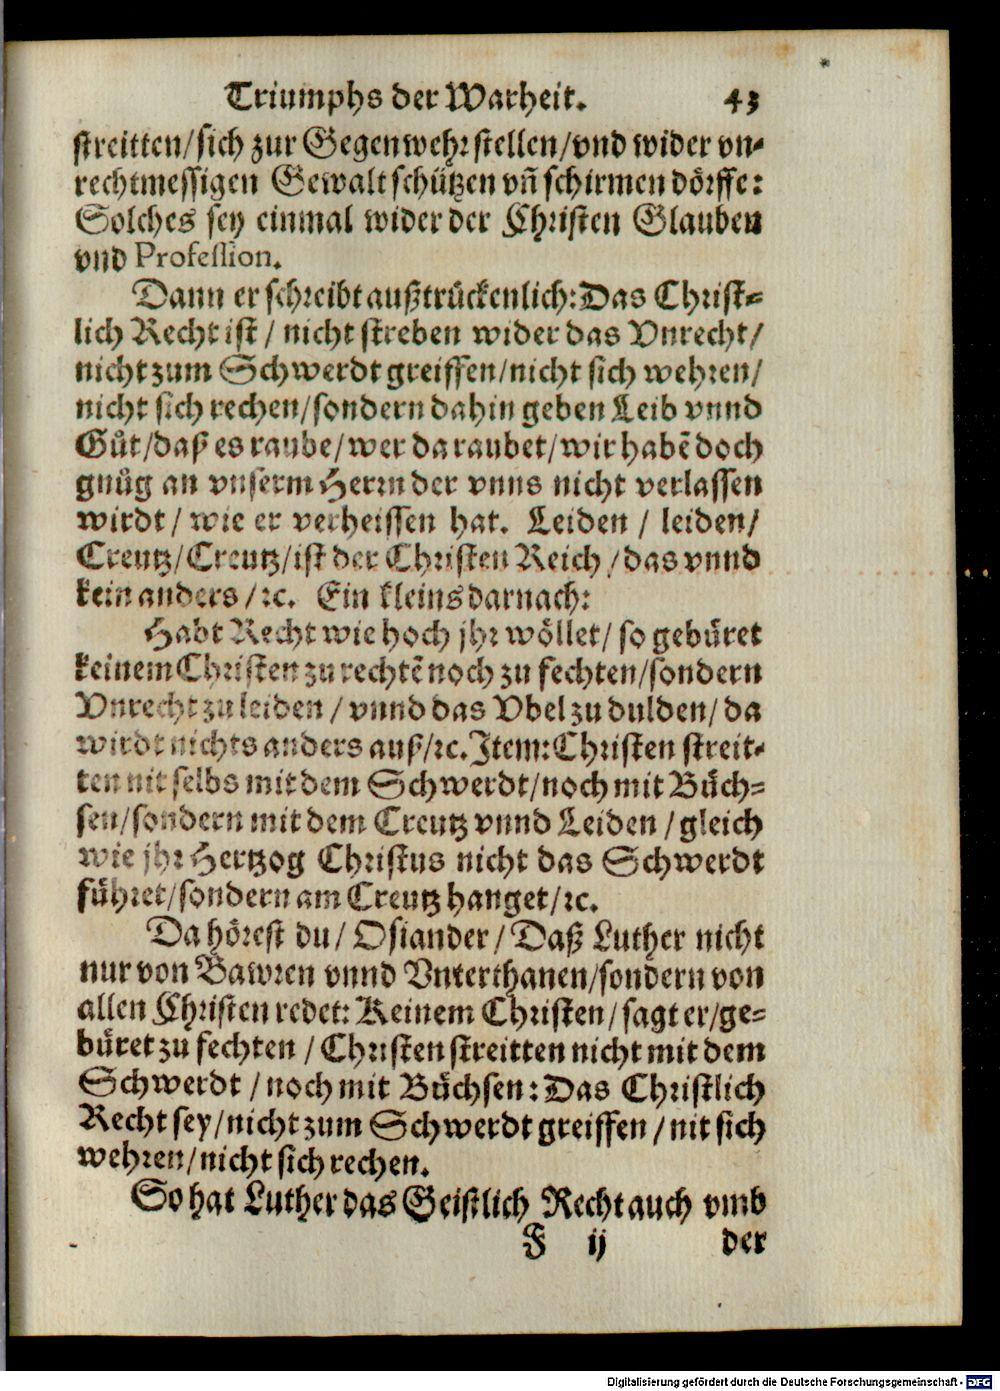 Triumphs der Warheit. 43
streitten/sich zur Gegenwehr stellen/vnd wider vn-
rechtmessigen Gewalt schützen vñ schirmen dörffe:
Solches sey einmal wider der Christen Glauben
vnd Profession.
Dann er schreibt außtrůckenlich: Das Christ-
lich Recht ist / nicht streben wider das Vnrecht/
nicht zum Schwerdt greiffen/nicht sich wehren/
nicht sich rechen/sondern dahin geben Leib vnnd
Gůt/daß es raube/wer da raubet/wir habẽ doch
gnůg an vnserm Herrn der vnns nicht verlassen
wirdt / wie er verheissen hat. Leiden / leiden/
Creutz/Creutz/ist der Christen Reich/das vnnd
kein anders/ꝛc. Ein kleins darnach:
Habt Recht wie hoch jhr wöllet/ so gebüret
keinem Christen zu rechtẽ noch zu fechten/sondern
Vnrecht zu leiden / vnnd das Vbel zu dulden/ da
wirdt nichts anders auß/ꝛc. Item: Christen streit-
ten nit selbs mit dem Schwerdt/noch mit Büch-
sen/sondern mit dem Creutz vnnd Leiden / gleich
wie jhr Hertzog Christus nicht das Schwerdt
führet/sondern am Creutz hanget/ꝛc.
Da hörest du/ Osiander/ Daß Luther nicht
nur von Bawren vnnd Vnterthanen/sondern von
allen Christen redet: Keinem Christen/ sagt er/ge-
büret zu fechten / Christen streitten nicht mit dem
Schwerdt / noch mit Büchsen: Das Christlich
Recht sey/nicht zum Schwerdt greiffen / nit sich
wehren/nicht sich rechen.
So hat Luther das Geistlich Recht auch vmb
F ij der
Digitalisierung gefördert durch die Deutsche Forschungsgemeinschaft - DFG